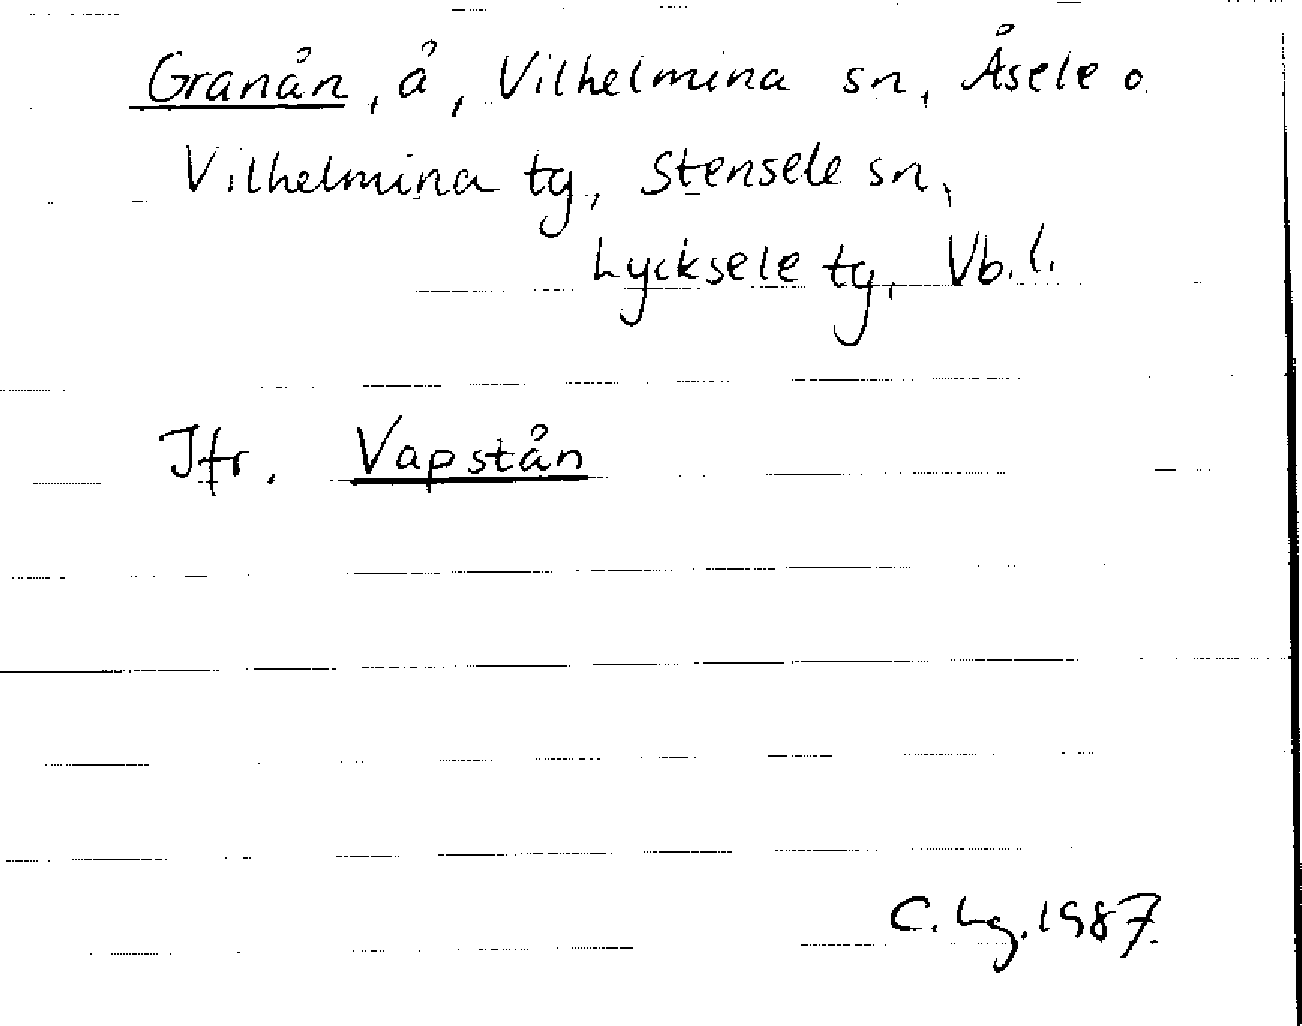 Granån, å, Vilhelmina sn, Åsele o
Vilhelmina tg, Stensele sn,
Lycksele tg, Vb. l.
Jfr. Vapstån
C. Lg. 1987.